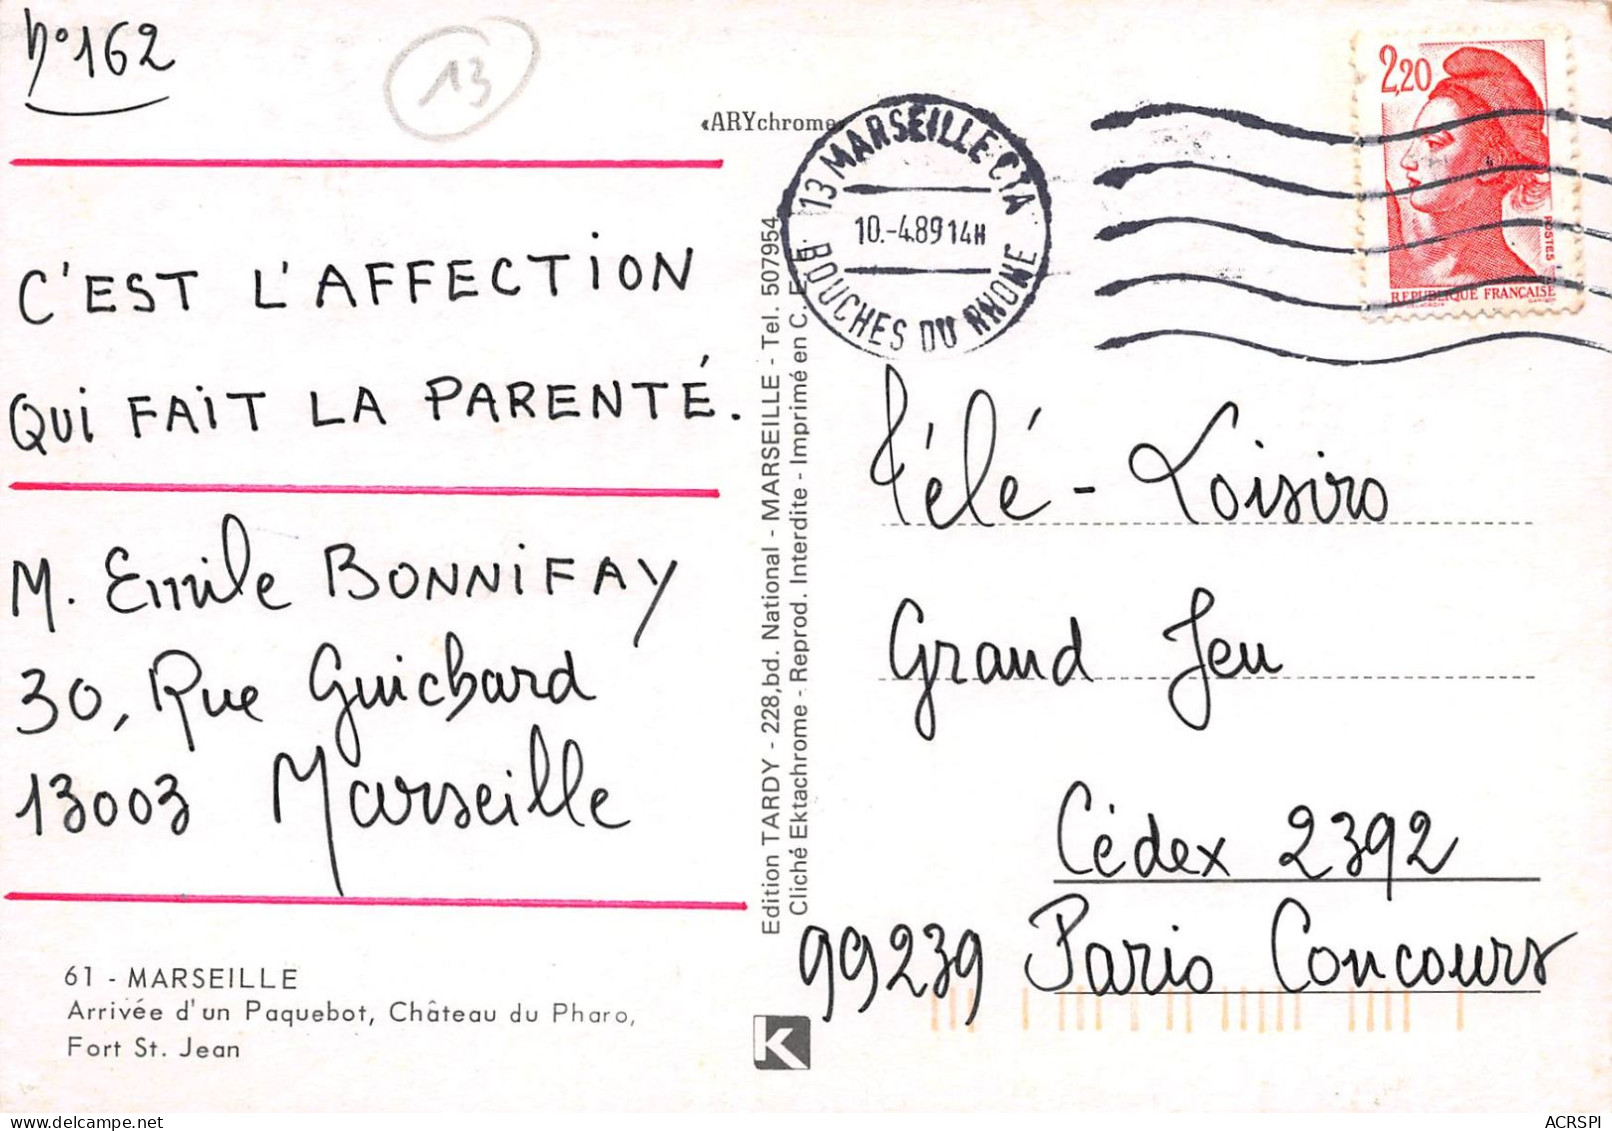 n°162
13
«ARYchrome»
13 MARSEILLE CTA
10.-4.89 14H
BOUCHES DU RHONE
2,20
POSTES
REPUBLIQUE FRANÇAISE
C'EST L'AFFECTION
QUI FAIT LA PARENTÉ.
M. Emile BONNIFAY
30, Rue Guichard
13003 Marseille
61 - MARSEILLE
Arrivée d'un Paquebot, Château du Pharo,
Fort St. Jean
Edition TARDY - 228,bd. National - MARSEILLE - Tel. 507954
Cliché Ektachrome - Reprod. Interdite - Imprimé en C. E. E.
K
Télé-Loisirs
Grand Jeu
Cédex 2392
99239 Paris Concours
ACRSPI